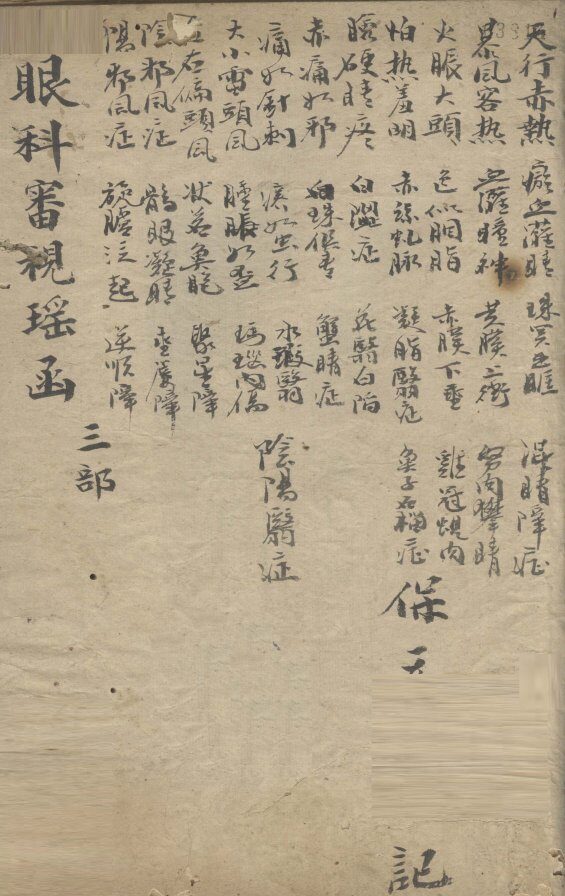 天行赤熱 瘀血灌睛 珠突出眶 混睛障症
暴風客热 血灌瞳神 黄膜上衝 努肉攀睛
火脹大頭 色似胭脂 赤膜下垂 雞冠蜆肉
怕热羞明 赤絲虬脉 凝脂翳症 魚子石榴症
睡硬睛疼 白溫症 花翳白陷
赤痛如邪 白珠俱青 蟹睛症
痛如針刺 淚如出行 水瑕翳 陰陽翳症
大小雷頭風 腫脹如盃 瑪瑙內傷
左右偏頭風 狀若魚胞 聚星障
陰邪風症 鶻眼凝睛 垂簾障
陽邪風症 旋臚泛起 逆順障
眼科審視瑶函
三部
保
記